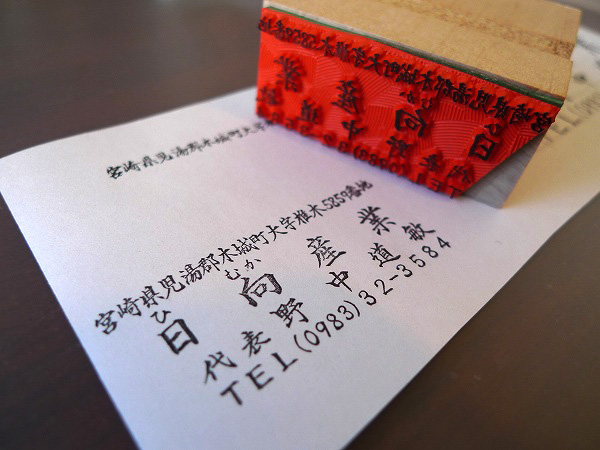 宮崎県児湯郡木城町大字
宮崎県児湯郡木城町大字椎木5259番地
ひ むか
日向産業
代表 野中道敏
TEL(0983)32-3584